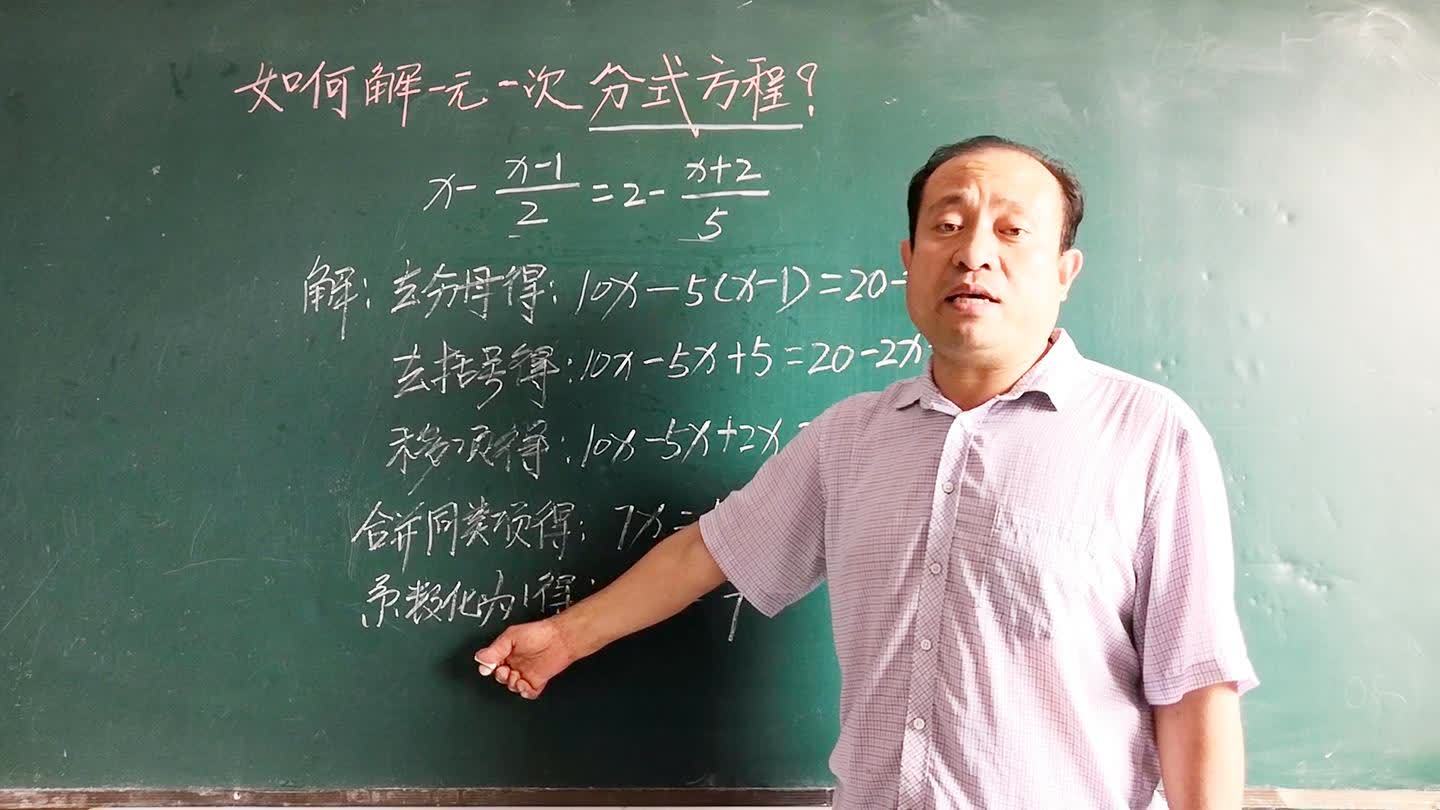 如何解一元一次分式方程?
x - \frac{x-1}{2} = 2 - \frac{x+2}{5}
解: 去分母得: 10x - 5(x-1) = 20 -
去括号得: 10x - 5x + 5 = 20 - 2x
移项得: 10x - 5x + 2x =
合并同类项得: 7x =
系数化为1得: 7